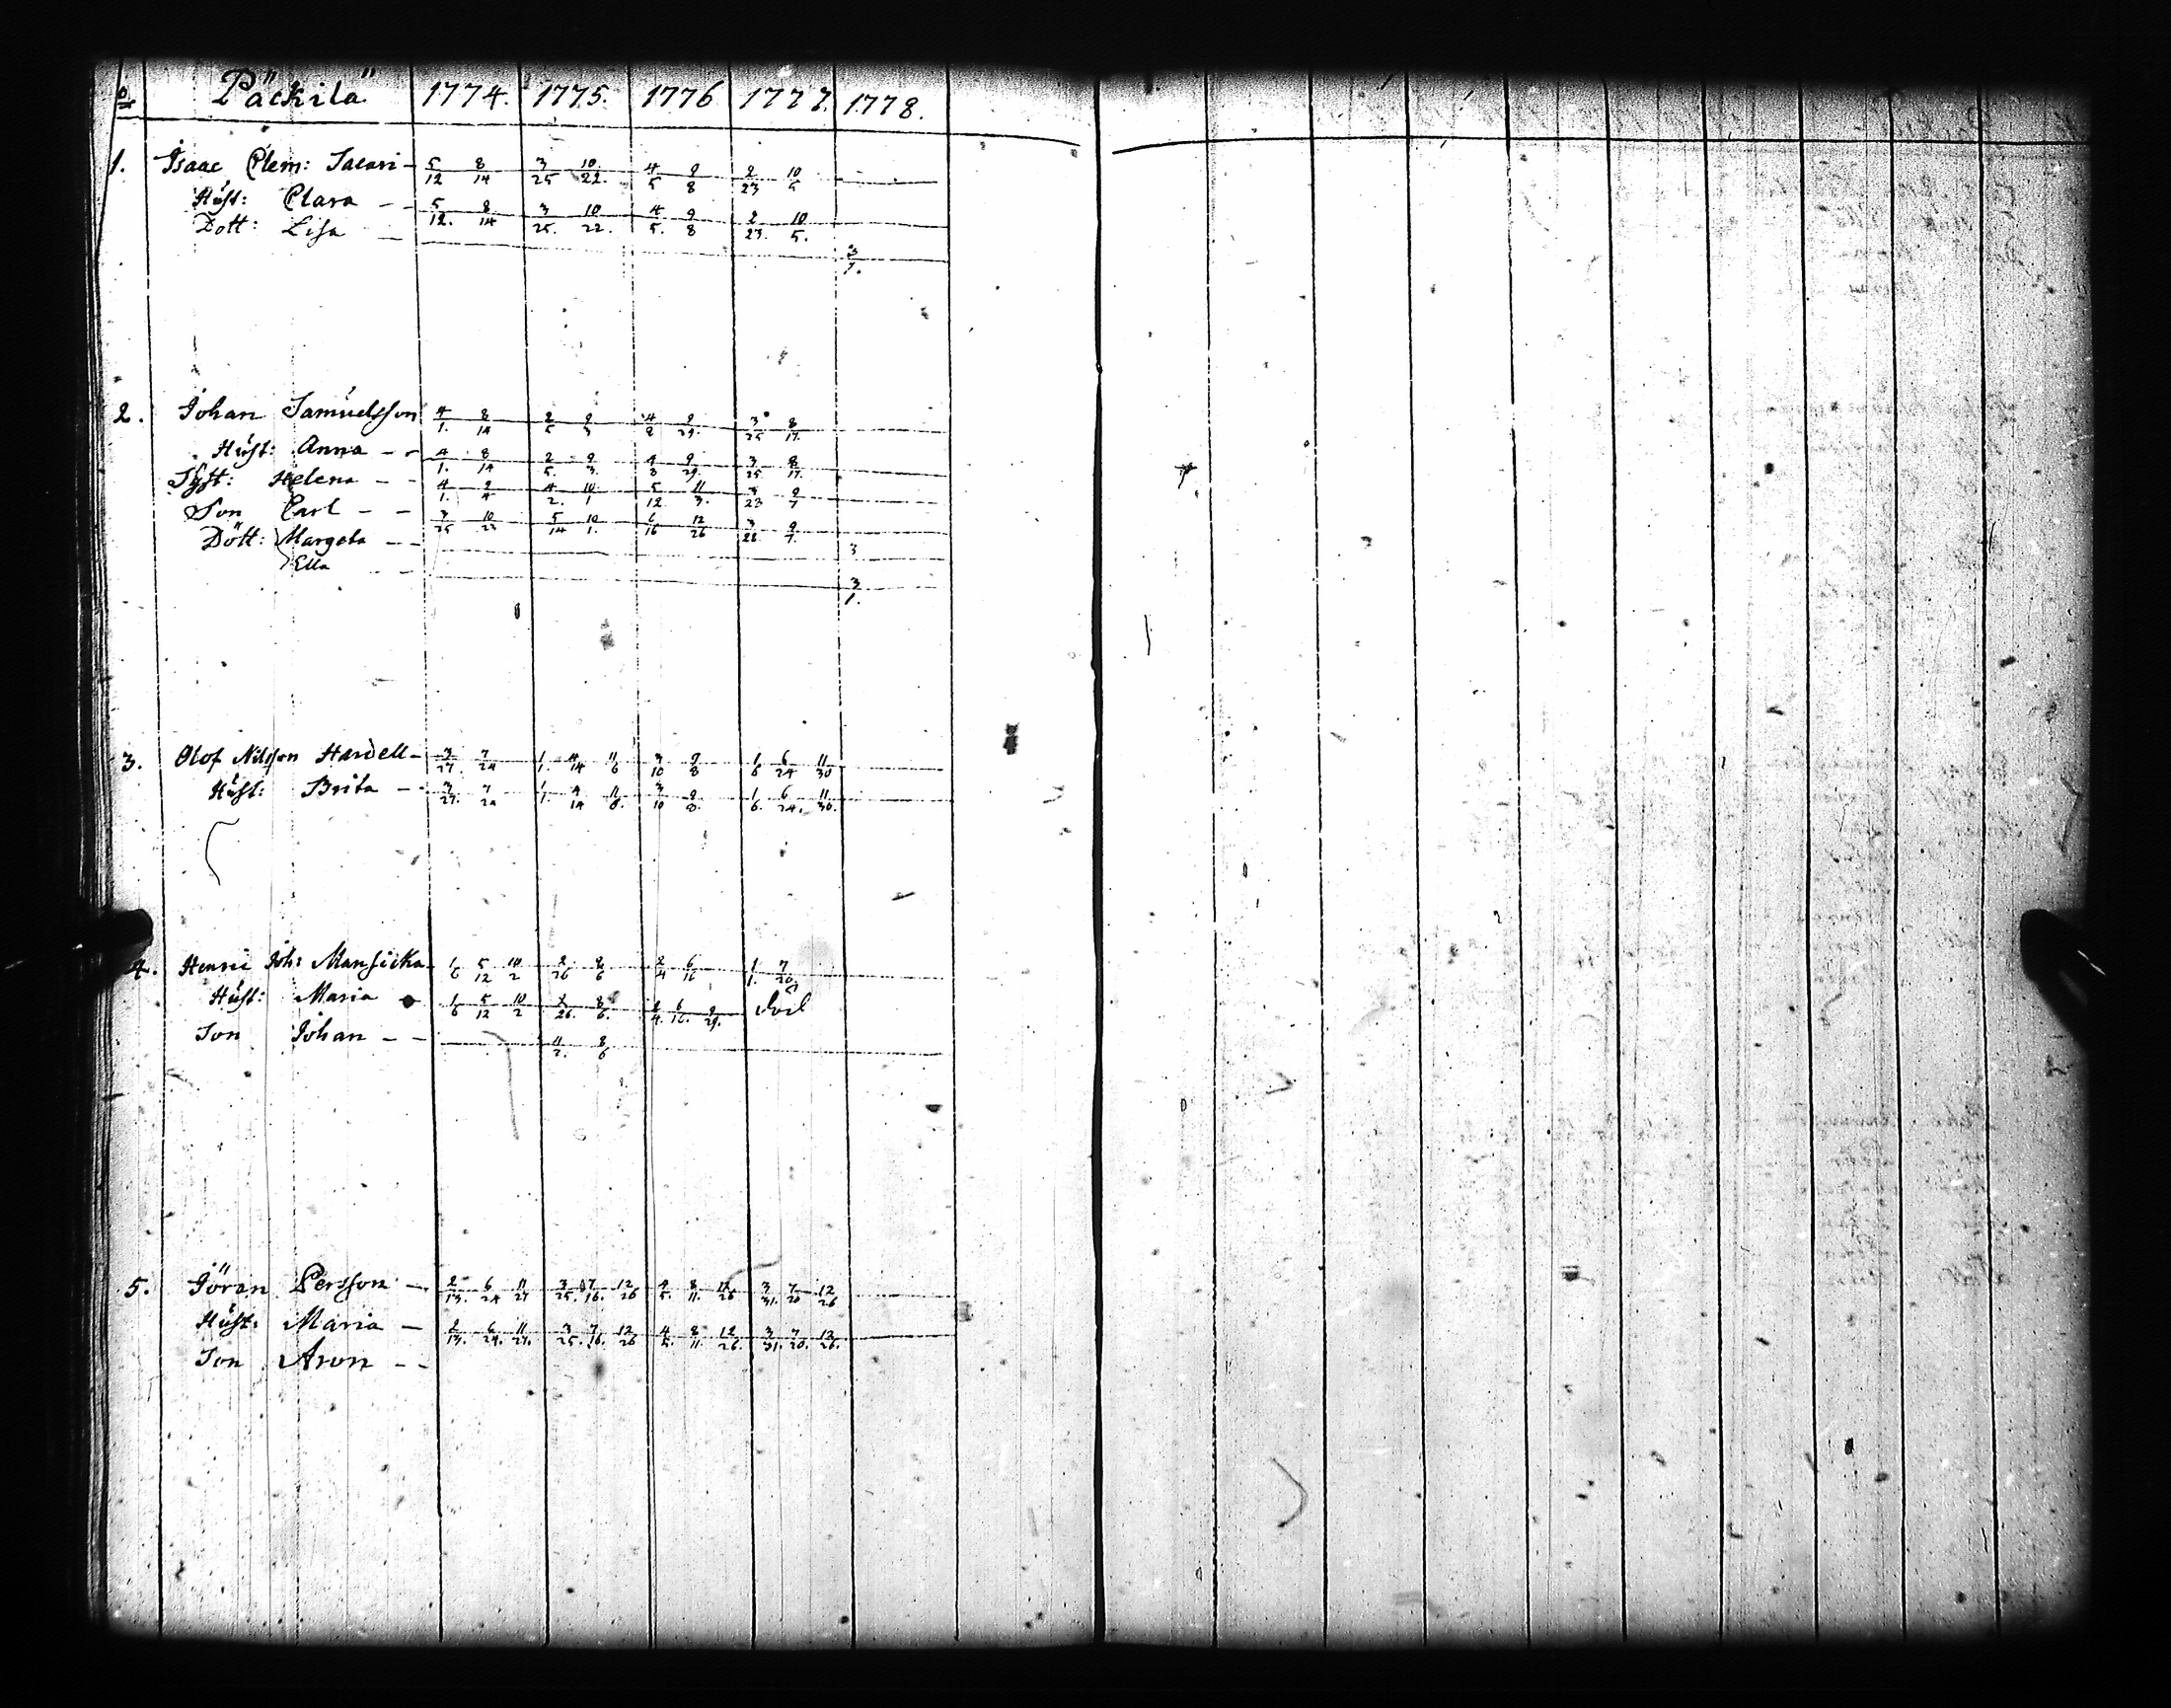 Päckilä 1774. 1775. 1776 1777. 1778.
1. Isaac Clem: Sacari - 5/12 8/14 3/25 10/22. 4/5 9/8 2/23 10/5
Hust: Clara - - 5/12. 8/14 3/25. 10/22. 4/5. 9/8 2/23. 10/5.
Dott: Lisa 3/1.
2. Johan Samuelsson 4/1. 8/14 2/5 9/3 4/8 9/29. 3/25 8/17.
Hust: Anna - - 4/1. 8/14 2/5. 9/3. 4/8 9/29. 3/25 8/17.
Syst: Helena - - 4/1. 9/4 4/2. 10/1 5/12 11/3. 3/23 9/7
Son Carl - - 3/25 10/23 5/14 10/1. 6/16 12/26 3/26 9/7.
Dött: Margeta - - 3
Ella 3/1.
3. Olof Nilsson Hardell - 3/27. 7/24 1/1. 4/14 11/6 3/10 9/8 1/6 6/24 11/30
Hust: Brita - - 3/27. 7/24 1/1. 4/14 11/6. 3/10 9/8. 1/6. 6/24. 11/30.
4. Henric Joh: Mansicka 1/6 5/12 10/2 2/26 8/6 2/4 6/16 1/1. 7/20
Hust: Maria 1/6 5/12 10/2 2/26. 8/6. 2/4. 6/16. 9/29. död
Son Johan - - 11/2. 8/6
5. Jöran Persson - 2/13. 6/24 11/27 3/25. 7/16. 12/26 4/5. 8/11. 12/26 3/31. 7/20 12/26
Hust: Maria - 2/13. 6/24. 11/27. 3/25. 7/16. 12/26 4/5. 8/11. 12/26. 3/31. 7/20. 12/26.
Son Aron - -